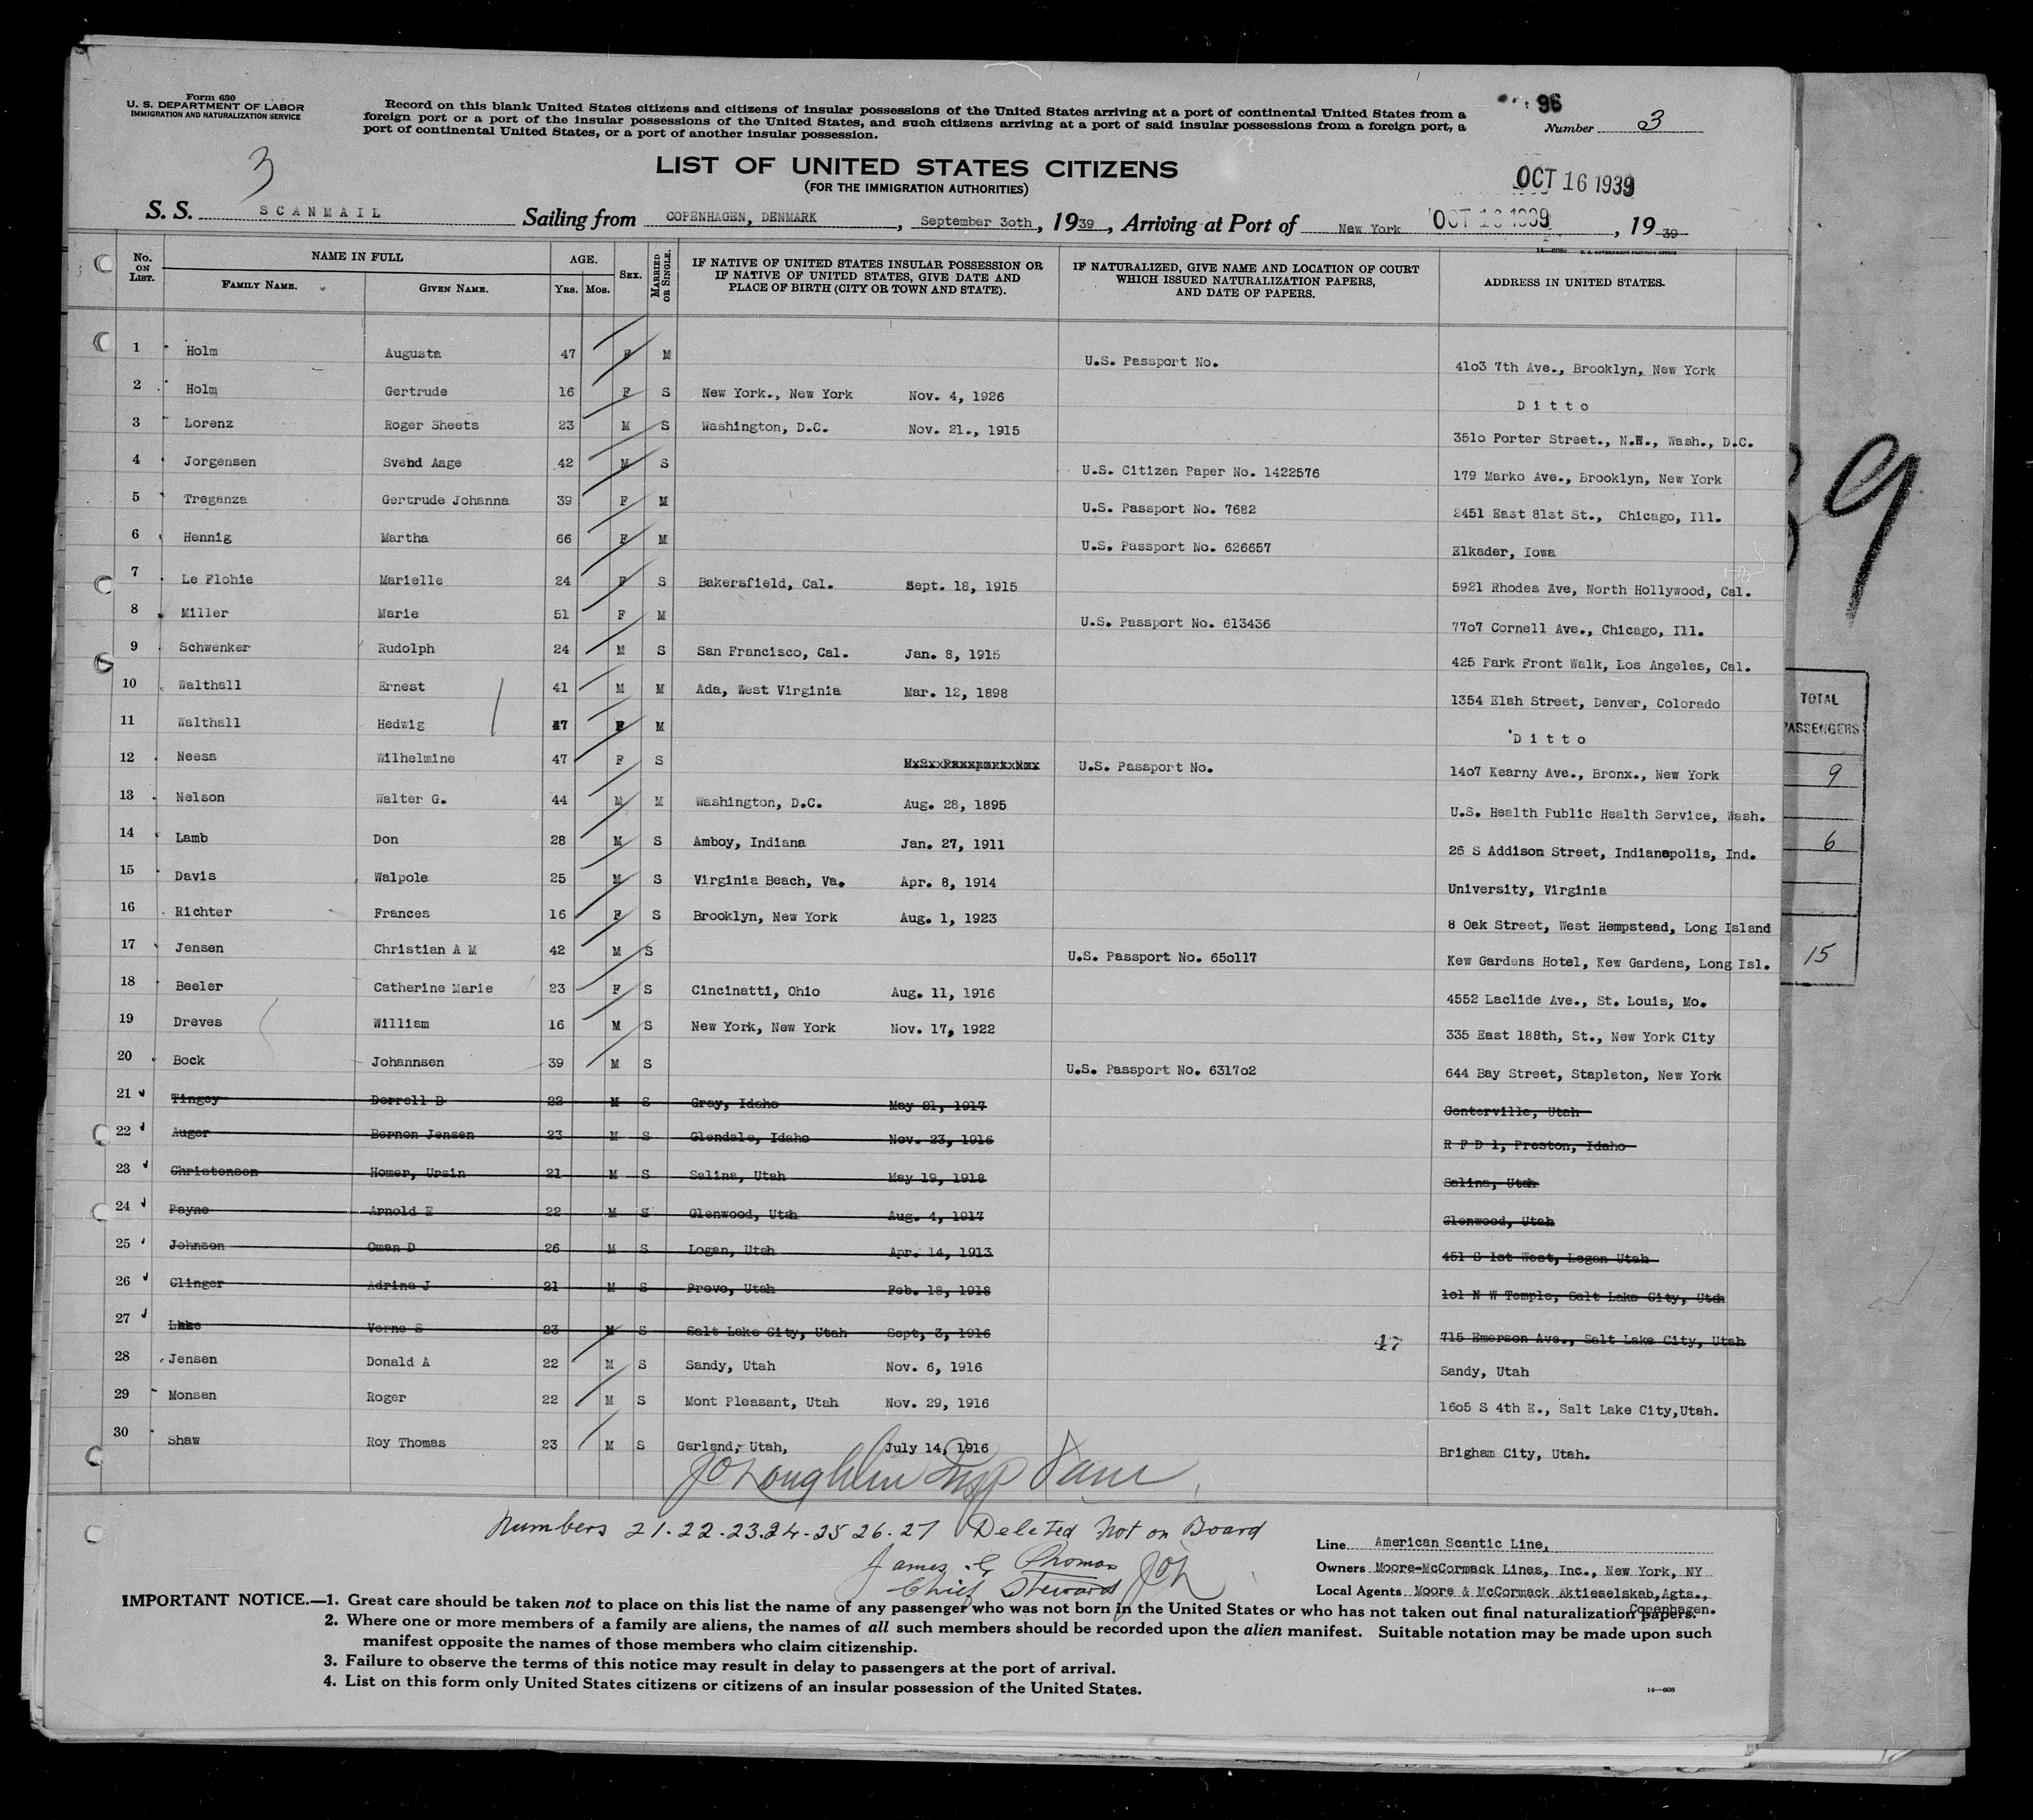 Form 630
U. S. DEPARTMENT OF LABOR
IMMIGRATION AND NATURALIZATION SERVICE
Record on this blank United States citizens and citizens of insular possessions of the United States arriving at a port of continental United States from a
foreign port or a port of the insular possessions of the United States, and such citizens arriving at a port of said insular possessions from a foreign port, a
port of continental United States, or a port of another insular possession.
96
Number 3
3
LIST OF UNITED STATES CITIZENS
(FOR THE IMMIGRATION AUTHORITIES)
OCT 16 1939
S. S. SCANMAIL Sailing from COPENHAGEN, DENMARK, September 30th, 1939, Arriving at Port of New York OCT 16 1939, 1939
14—608c U. S. GOVERNMENT PRINTING OFFICE
No. ON LIST. NAME IN FULL FAMILY NAME. GIVEN NAME. AGE. YRS. MOS. SEX. MARRIED OR SINGLE. IF NATIVE OF UNITED STATES INSULAR POSSESSION OR IF NATIVE OF UNITED STATES, GIVE DATE AND PLACE OF BIRTH (CITY OR TOWN AND STATE). IF NATURALIZED, GIVE NAME AND LOCATION OF COURT WHICH ISSUED NATURALIZATION PAPERS, AND DATE OF PAPERS. ADDRESS IN UNITED STATES.
1 Holm Augusta 47 F M U.S. Passport No. 4103 7th Ave., Brooklyn, New York
2 Holm Gertrude 16 F S New York., New York Nov. 4, 1926 Ditto
3 Lorenz Roger Sheets 23 M S Washington, D.C. Nov. 21., 1915 3510 Porter Street., N.W., Wash., D.C.
4 Jorgensen Svend Aage 42 M S U.S. Citizen Paper No. 1422576 179 Marko Ave., Brooklyn, New York
5 Treganza Gertrude Johanna 39 F M U.S. Passport No. 7682 2451 East 81st St., Chicago, Ill.
6 Hennig Martha 66 F M U.S. Passport No. 626657 Elkader, Iowa
7 Le Flohie Marielle 24 F S Bakersfield, Cal. Sept. 18, 1915 5921 Rhodes Ave, North Hollywood, Cal.
8 Miller Marie 51 F M U.S. Passport No. 613436 7707 Cornell Ave., Chicago, Ill.
9 Schwenker Rudolph 24 M S San Francisco, Cal. Jan. 8, 1915 425 Park Front Walk, Los Angeles, Cal.
10 Walthall Ernest 41 M M Ada, West Virginia Mar. 12, 1898 1354 Elah Street, Denver, Colorado
11 Walthall Hedwig 47 F M Ditto
12 Neess Wilhelmine 47 F S U.S. Passport No. 1407 Kearny Ave., Bronx., New York
13 Nelson Walter G. 44 M M Washington, D.C. Aug. 28, 1895 U.S. Health Public Health Service, Wash.
14 Lamb Don 28 M S Amboy, Indiana Jan. 27, 1911 26 S Addison Street, Indianapolis, Ind.
15 Davis Walpole 25 M S Virginia Beach, Va. Apr. 8, 1914 University, Virginia
16 Richter Frances 16 F S Brooklyn, New York Aug. 1, 1923 8 Oak Street, West Hempstead, Long Island
17 Jensen Christian A M 42 M S U.S. Passport No. 650117 Kew Gardens Hotel, Kew Gardens, Long Isl.
18 Beeler Catherine Marie 23 F S Cincinatti, Ohio Aug. 11, 1916 4552 Laclide Ave., St. Louis, Mo.
19 Dreves William 16 M S New York, New York Nov. 17, 1922 335 East 188th, St., New York City
20 Bock Johannsen 39 M S U.S. Passport No. 631702 644 Bay Street, Stapleton, New York
21 Tingey Derrell B 22 M S Gray, Idaho May 21, 1917 Centerville, Utah
22 Auger Bernon Jensen 23 M S Glendale, Idaho Nov. 23, 1916 R F D 1, Preston, Idaho
23 Christensen Homer, Ursin 21 M S Salina, Utah May 19, 1918 Salina, Utah
24 Payne Arnold E 22 M S Glenwood, Utah Aug. 4, 1917 Glenwood, Utah
25 Johnson Oman D 26 M S Logan, Utah Apr. 14, 1913 451 S 1st West, Logan Utah
26 Clinger Adrina J 21 M S Provo, Utah Feb. 18, 1918 101 N W Temple, Salt Lake City, Utah
27 Verne S 23 M S Salt Lake City, Utah Sept, 3, 1916 47 715 Emerson Ave., Salt Lake City, Utah
28 Jensen Donald A 22 M S Sandy, Utah Nov. 6, 1916 Sandy, Utah
29 Monsen Roger 22 M S Mont Pleasant, Utah Nov. 29, 1916 1605 S 4th E., Salt Lake City,Utah.
30 Shaw Roy Thomas 23 M S Garland, Utah, July 14, 1916 Brigham City, Utah.
JO'Loughlin Insp
Numbers 21.22.23.24-25 26.27 Deleted Not on Board
James Thomas
Chief Steward JOL
Line American Scantic Line,
Owners Moore-McCormack Lines, Inc., New York, NY
Local Agents Moore & McCormack Aktieselskab,Agts.,
Copenhagen.
IMPORTANT NOTICE.—1. Great care should be taken not to place on this list the name of any passenger who was not born in the United States or who has not taken out final naturalization papers.
2. Where one or more members of a family are aliens, the names of all such members should be recorded upon the alien manifest. Suitable notation may be made upon such
manifest opposite the names of those members who claim citizenship.
3. Failure to observe the terms of this notice may result in delay to passengers at the port of arrival.
4. List on this form only United States citizens or citizens of an insular possession of the United States.
14—608
9
TOTAL
PASSENGERS
9
6
15